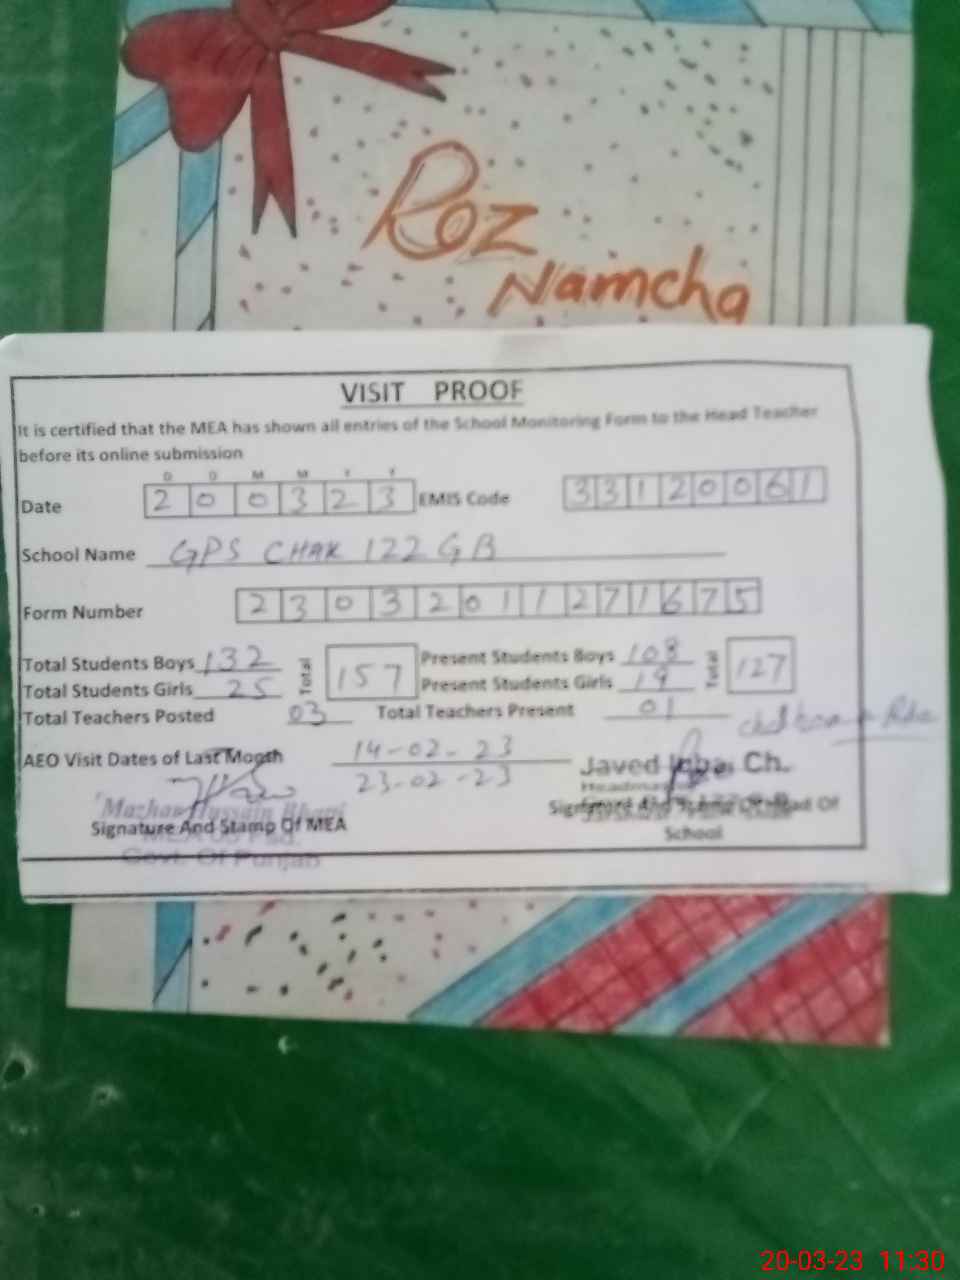 Roz
Namcha
VISIT PROOF
It is certified that the MEA has shown all entries of the School Monitoring Form to the Head Teacher
before its online submission
D D M M Y Y
Date 2 0 0 3 2 3 EMIS Code 3 3 1 2 0 0 6 1
School Name GPS CHAK 122 GB
Form Number 2 3 0 3 2 0 1 1 2 7 1 6 7 5
Total Students Boys 132 Total 157 Present Students Boys 108 Total 127
Total Students Girls 25 Present Students Girls 19
Total Teachers Posted 03 Total Teachers Present 01
AEO Visit Dates of Last Month 14-02-23
23-02-23
Javed Iqbal Ch.
Headmaster
Mazhar Hussain Bhatti
Signature And Stamp Of MEA
Govt. Of Punjab
Signature And Stamp Of Head Of
School
20-03-23 11:30